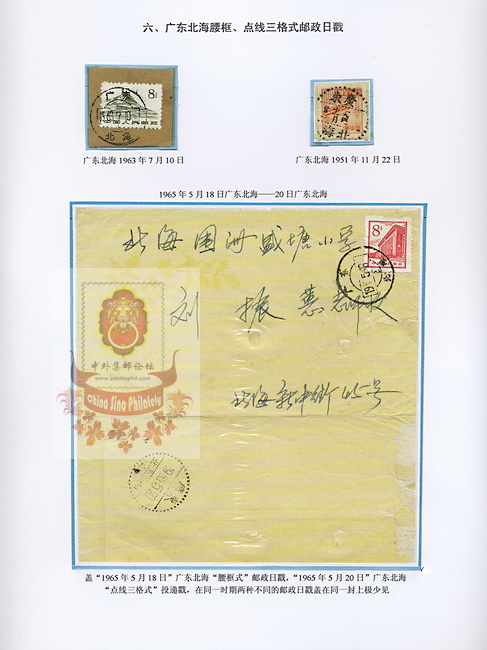 六、广东北海腰框、点线三格式邮政日戳
8
广东
北海
广东北海 1963 年 7 月 10 日
广东北海 1951 年 11 月 22 日
1965 年 5 月 18 日广东北海——20 日广东北海
北海围洲盛塘小学
8
刘 振
北海新中街45号
中外集邮论坛
www.chinasinophil.com
China Sino Philately
盖“1965 年 5 月 18 日”广东北海“腰框式”邮政日戳，“1965 年 5 月 20 日”广东北海
“点线三格式”投递戳，在同一时期两种不同的邮政日戳盖在同一封上极少见